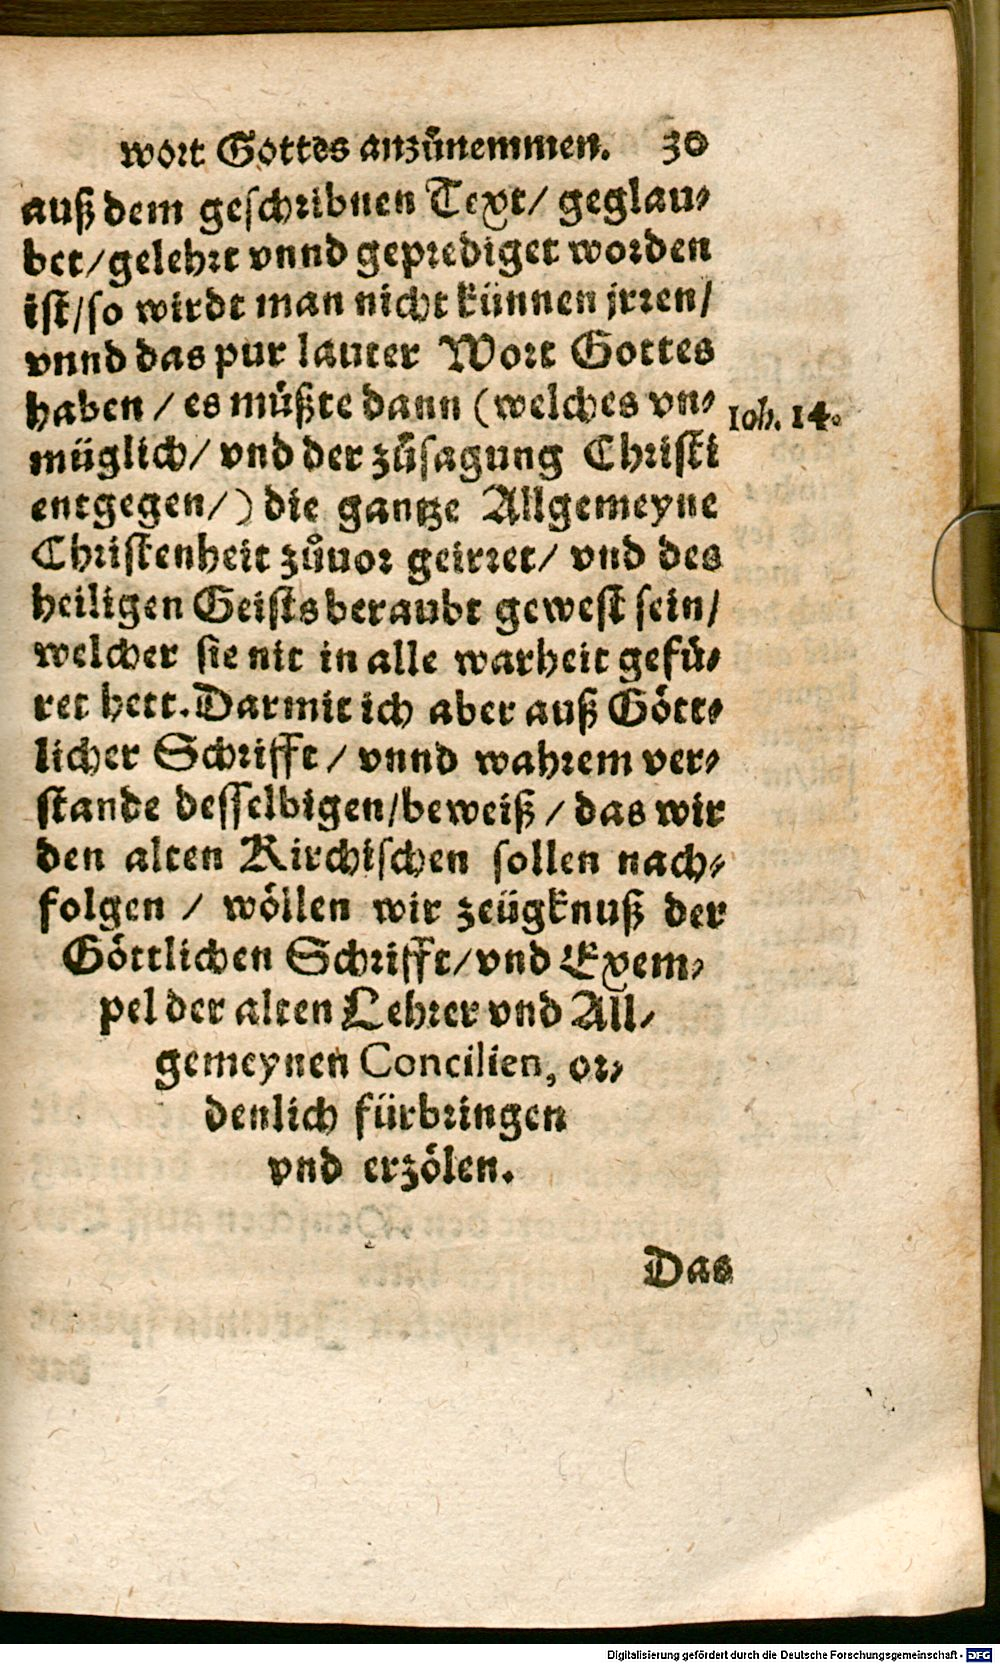 wort Gottes anzůnemmen. 30
auß dem geschribnen Text/ geglau⸗
bet/gelehrt vnnd geprediget worden
ist/so wirdt man nicht künnen jrren/
vnnd das pur lauter Wort Gottes
haben / es müßte dann (welches vn⸗
müglich/ vnd der zůsagung Christi
entgegen/) die gantze Allgemeyne
Christenheit zůuor geirret/ vnd des
heiligen Geists beraubt gewest sein/
welcher sie nit in alle warheit gefü⸗
ret hett. Darmit ich aber auß Gött⸗
licher Schrifft / vnnd wahrem ver⸗
stande desselbigen/beweiß / das wir
den alten Kirchischen sollen nach⸗
folgen / wöllen wir zeügknuß der
Göttlichen Schrifft/vnd Exem⸗
pel der alten Lehrer vnd All⸗
gemeynen Concilien, or⸗
denlich fürbringen
vnd erzölen.
Ioh. 14.
Das
Digitalisierung gefördert durch die Deutsche Forschungsgemeinschaft - DFG